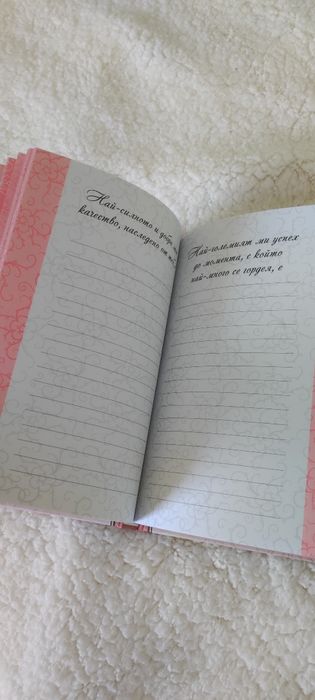 Най-силното и добро
качество, наследено от
Най-големият ми успех
до момента, с който
най-много се гордея, е